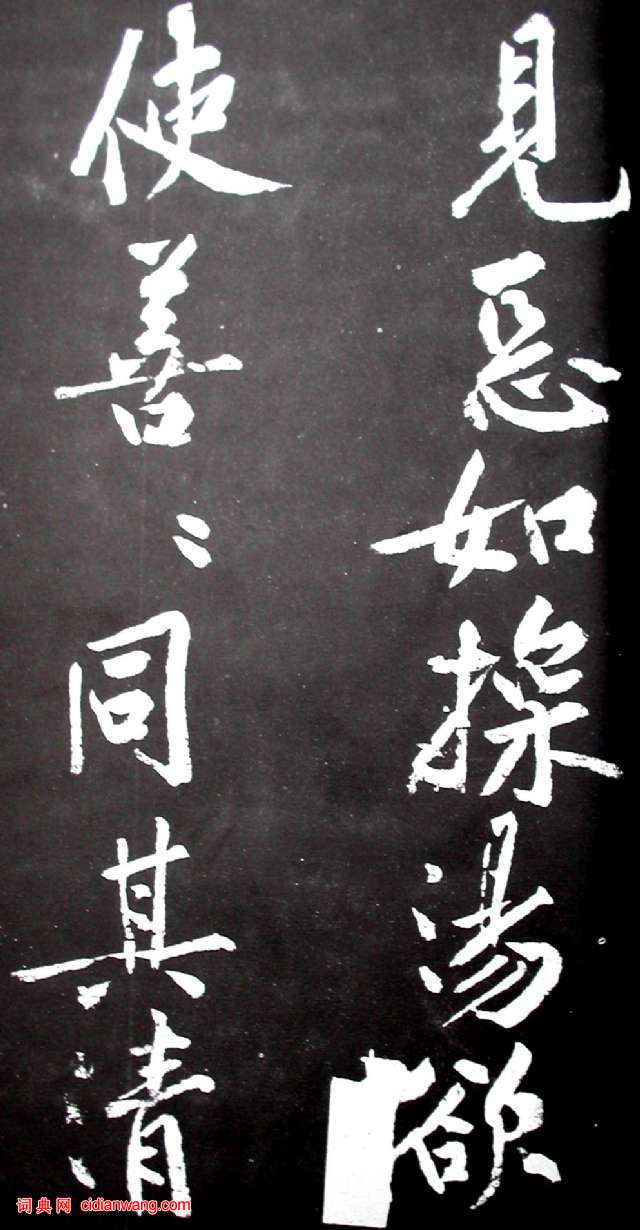 見惡如探湯欲
使善〻同其清
词典网 cidianwang.com